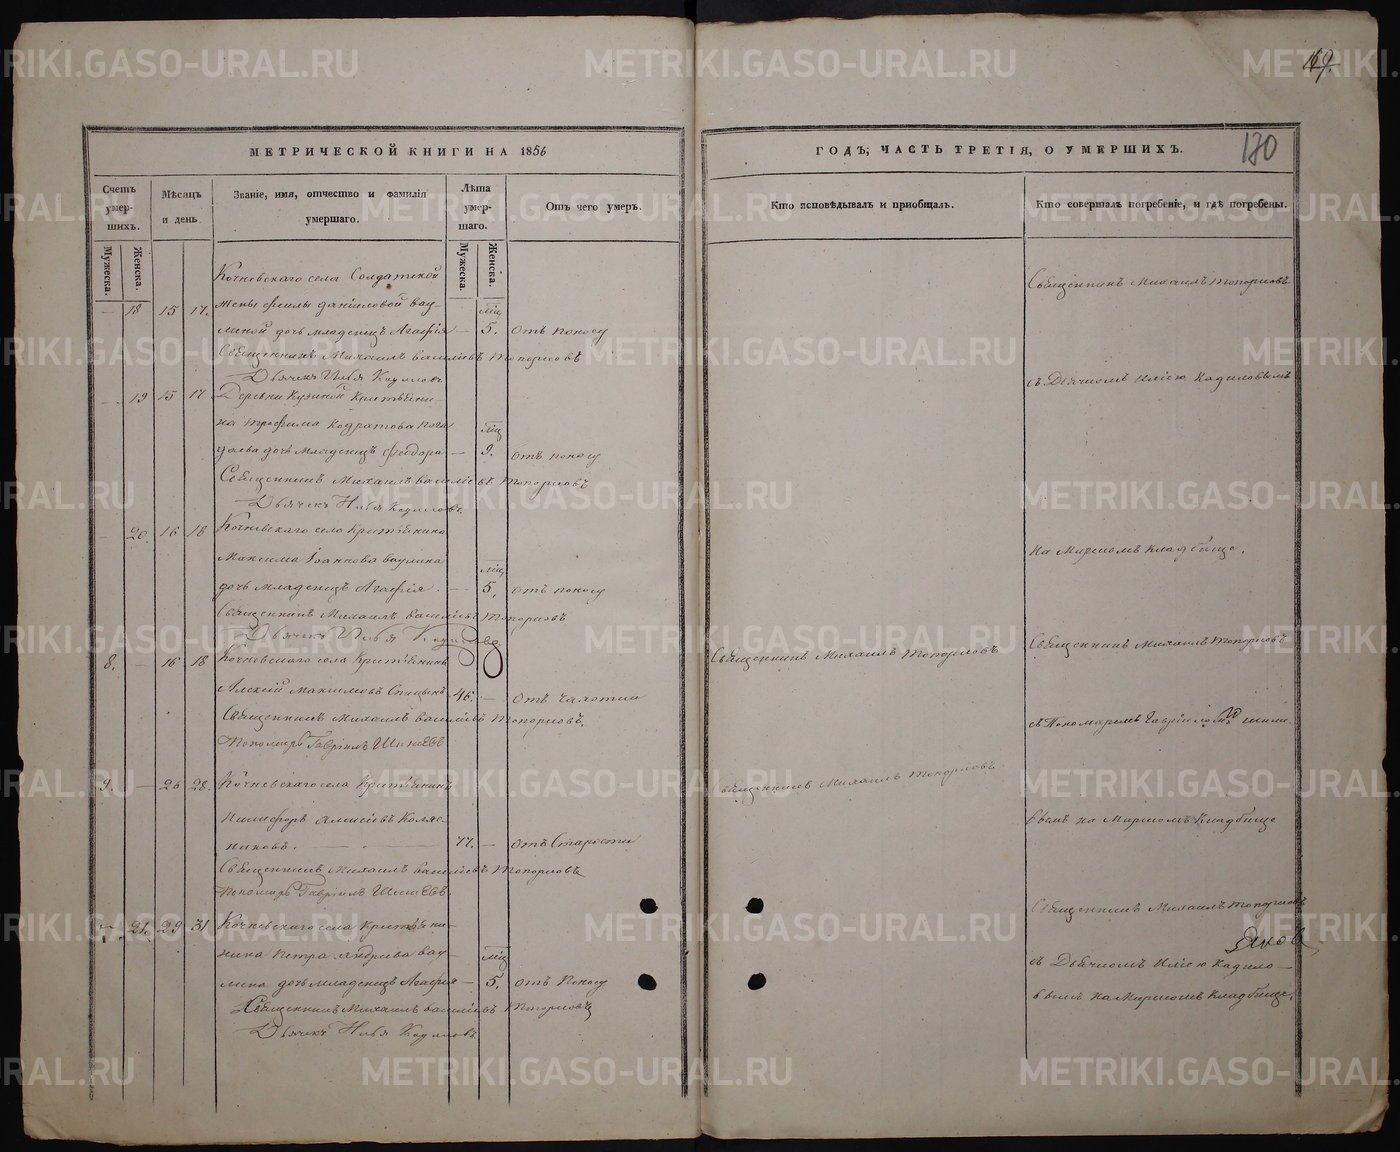 169.
170
МЕТРИЧЕСКОЙ КНИГИ НА 1856
ГОДЪ, ЧАСТЬ ТРЕТІЯ, О УМЕРШИХЪ.
Счетъ умер-шихъ.
Мѣсяцъ и день
Званіе, имя, отчество и фамилія умершаго.
Лѣта умер-шаго.
Отъ чего умеръ.
Кто исповѣдывалъ и пріобщалъ.
Кто совершалъ погребеніе, и гдѣ погребены.
Мужеска.
Женска.
Мужеска.
Женска.
Кочневскаго села Солдатской
— 18 15 17. жены Феклы Даниловой Вау-
мѣц
линой дочь младенецъ Агафія — 5. отъ поносу
Священникъ Михаилъ Василіевъ Топорковъ
Дьячекъ Илья Кадиловъ
19 15 17 Деревни Кузиной Крестьяни-
на Трофима Кодратова
мѣц
дочь младенецъ Феодора — 9. отъ поносу
Священникъ Михаилъ Василіевъ Топорковъ
Дьячекъ Илья Кадиловъ
— 20. 16 18 Кочневскаго села Крестьянина
Максима Іоаннова Ваулина
мѣц
дочь младенецъ Агафія. — 5. отъ поносу
Священникъ Михаилъ Василіевъ Топорковъ
Дьячекъ Илья Кадиловъ
8. — 16 18 Кочневскаго села Крестьянинъ
Алексій Максимовъ Спицынъ 46. — отъ чахотки
Священникъ Михаилъ Василіевъ Топорковъ.
Пономарь Гавріилъ
9. — 26 28. Кочневскаго села Крестьянинъ
Никифоръ Коляс-
никовъ. — 77. — отъ старости
Священникъ Михаилъ Василіевъ Топорковъ
Пономарь Гавріилъ
21. 29 31 Кочневскаго села Крестьяни-
нина Петра Андрева Вау-
мѣц
лина дочь младенецъ Агафія — 5. отъ поносу
Священникъ Михаилъ Василіевъ Топорковъ
Дьячекъ Илья Кадиловъ
Священникъ Михаилъ Топорковъ
Священникъ Михаилъ Топорковъ
Священникъ Михаилъ Топорковъ
съ Дьячкомъ Иліею Кадиловымъ
на Мирскомъ кладбище.
Священникъ Михаилъ Топорковъ
съ Пономаремъ Гавріиломъ
вымъ на Мирскомъ кладбище
Священникъ Михаилъ Топорковъ
съ Дьячкомъ Иліею Кадило-
вымъ на Мирскомъ кладбище.
METRIKI.GASO-URAL.RU